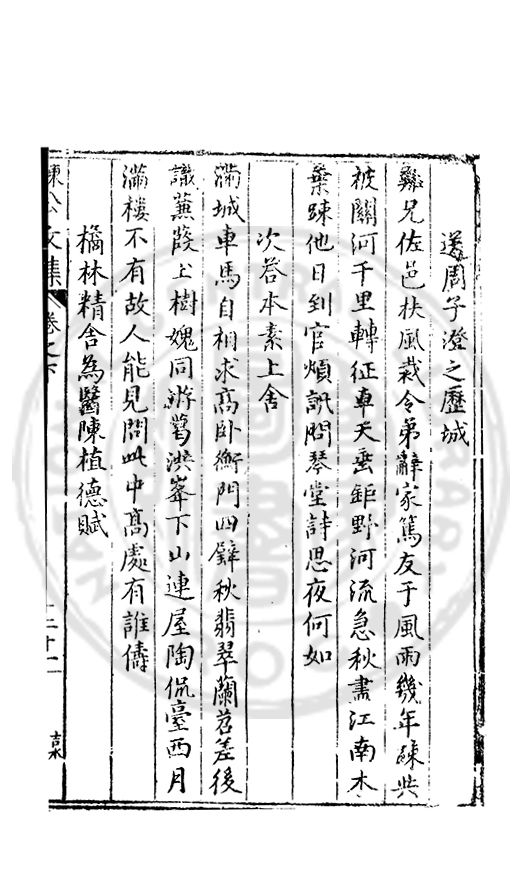 送周子澄之歷城
彝兄佐邑扶風裁令弟辭家篤友于風雨幾年疎共
被關河千里轉征車天垂鉅野河流急秋盡江南木
葉疎他日到官煩訊問琴堂詩思夜何如
次荅本素上舍
滿城車馬自相求高卧衡門四壁秋翡翠蘭苕差後
識蒹葭上樹媿同遊葛洪峯下山連屋陶侃臺西月
滿樓不有故人能見問此中高處有誰儔
橘林精舍為醫陳植德賦
文集 卷之下